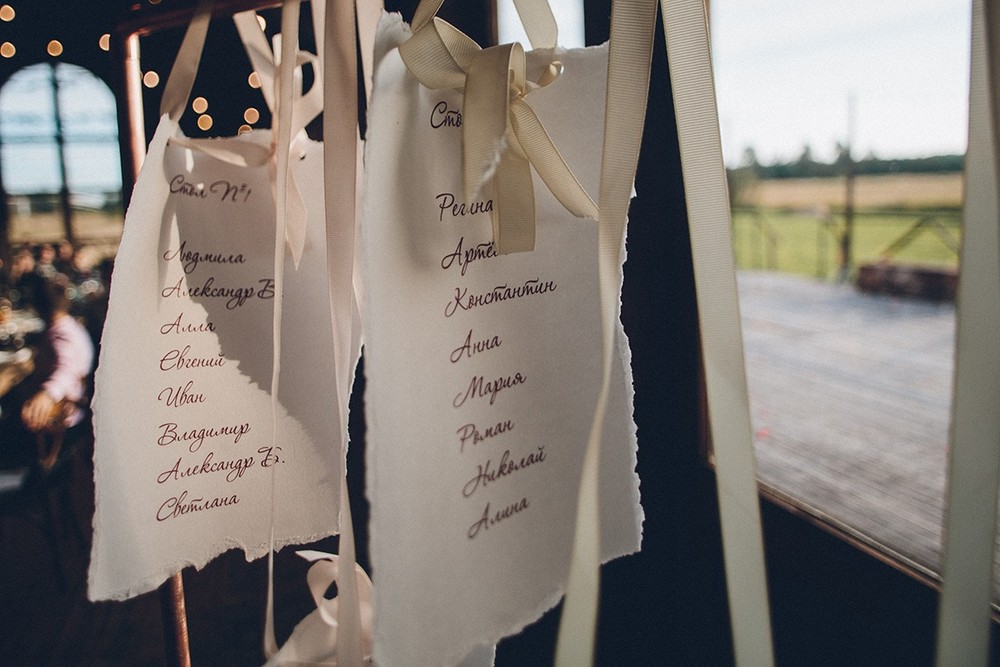 Стол №1
Людмила
Александр В.
Алла
Евгений
Иван
Владимир
Александр Б.
Светлана
Сто
Регина
Артё
Константин
Анна
Мария
Роман
Николай
Алина